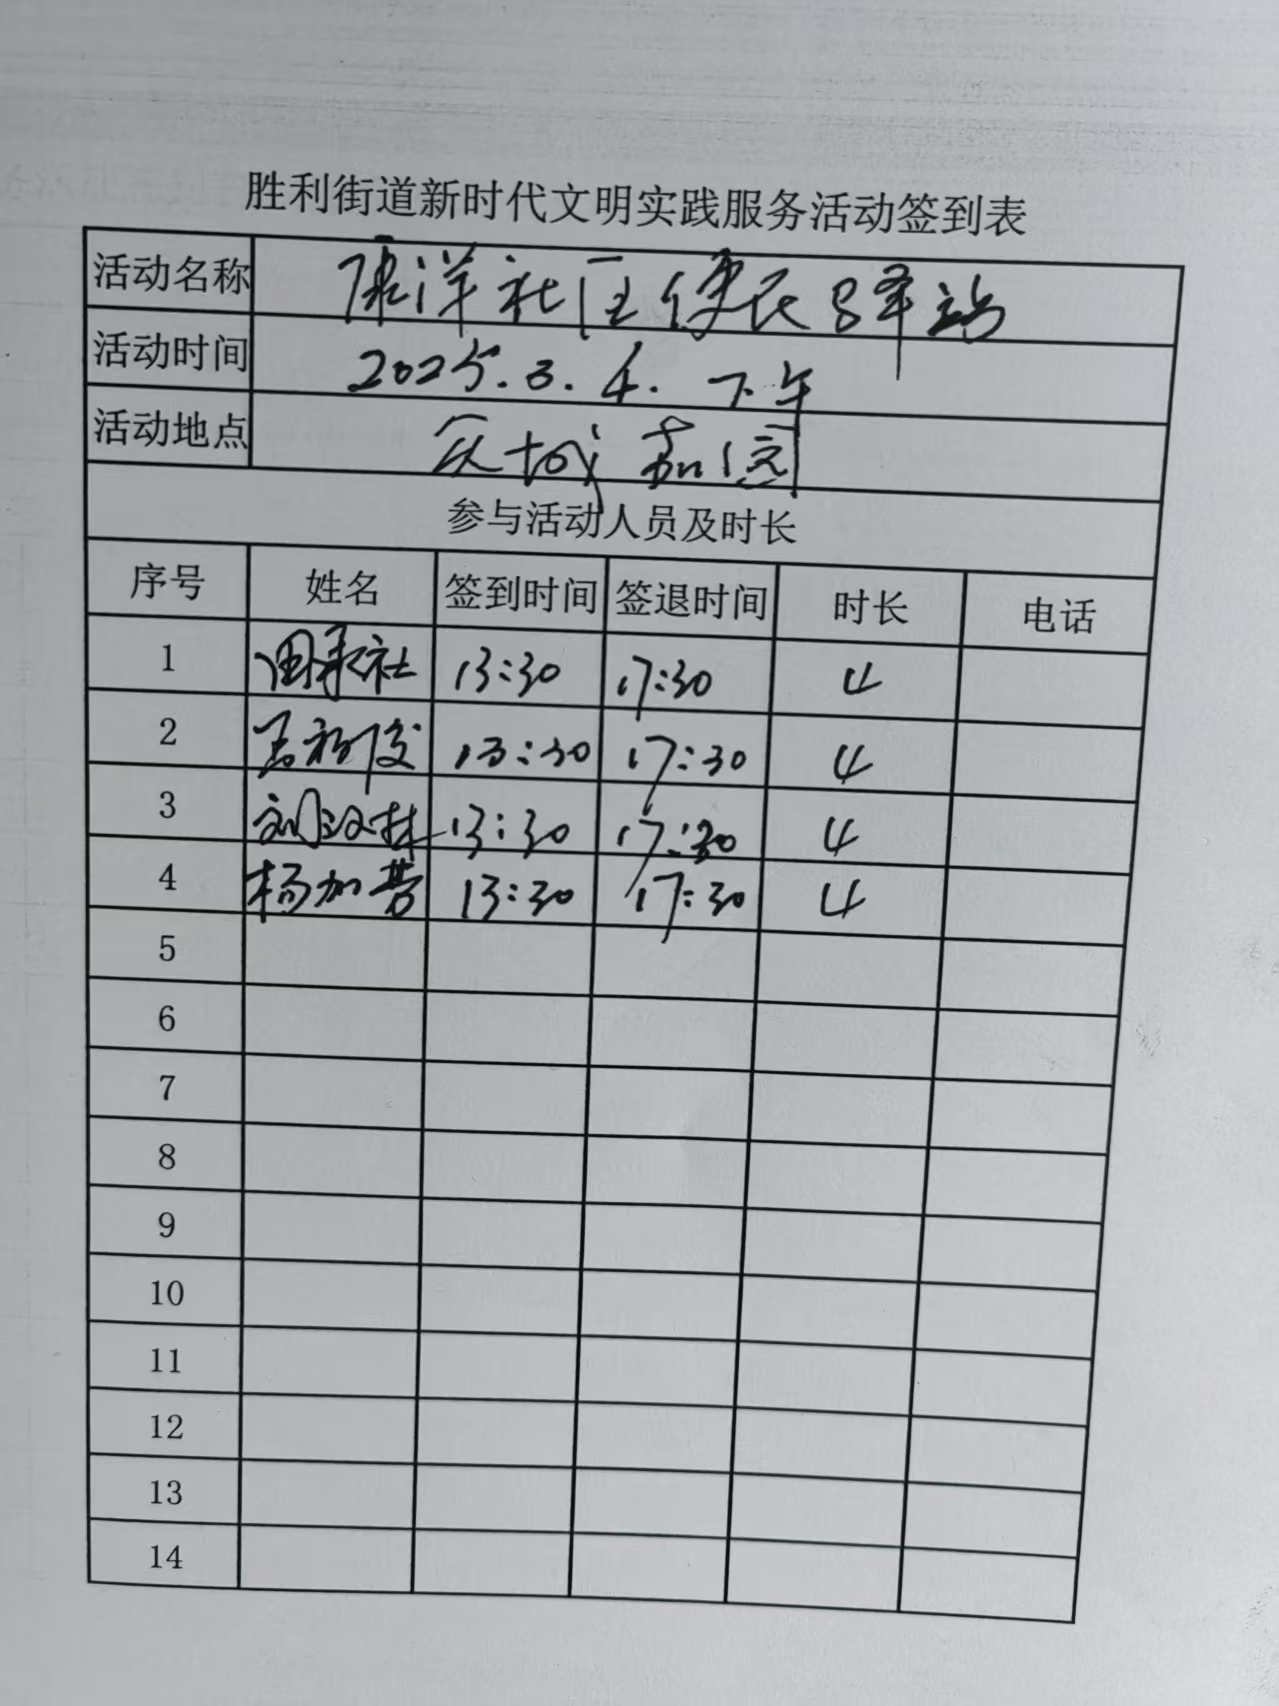 胜利街道新时代文明实践服务活动签到表
活动名称 康洋社区便民驿站
活动时间 2025.3.4. 下午
活动地点 庆城嘉园
参与活动人员及时长
序号 姓名 签到时间 签退时间 时长 电话
1 田承社 13:30 17:30 4
2 13:30 17:30 4
3 刘汉林 13:30 17:30 4
4 杨加芳 13:30 17:30 4
5
6
7
8
9
10
11
12
13
14